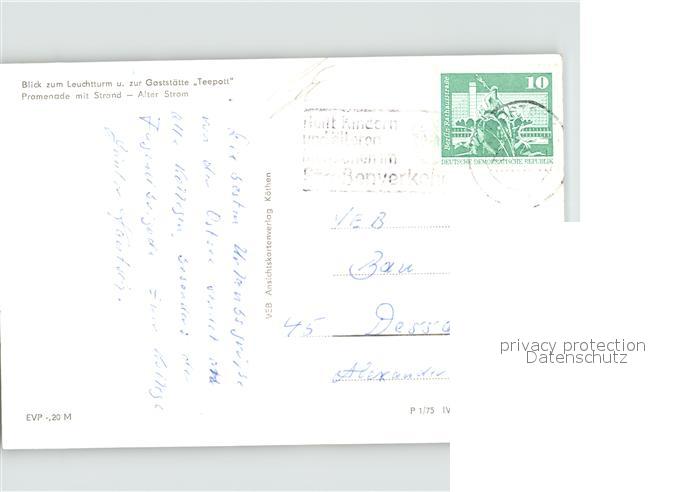 Blick zum Leuchtturm u. zur Gaststätte „Teepott"
Promenade mit Strand — Alter Strom
Die besten Urlaubsgrüße
von der Ostsee sendet
alle Kollegen, besonders der
Jugendbrigade
VEB Ansichtskartenverlag Köthen
Helft Kindern
und älteren
Straßenverkehr
10
Berlin, Rathausstraße
DEUTSCHE DEMOKRATISCHE REPUBLIK
VEB
Bau
45 Dessa
Alexander
EVP -,20 M
P 1/75 IV
privacy protection
Datenschutz